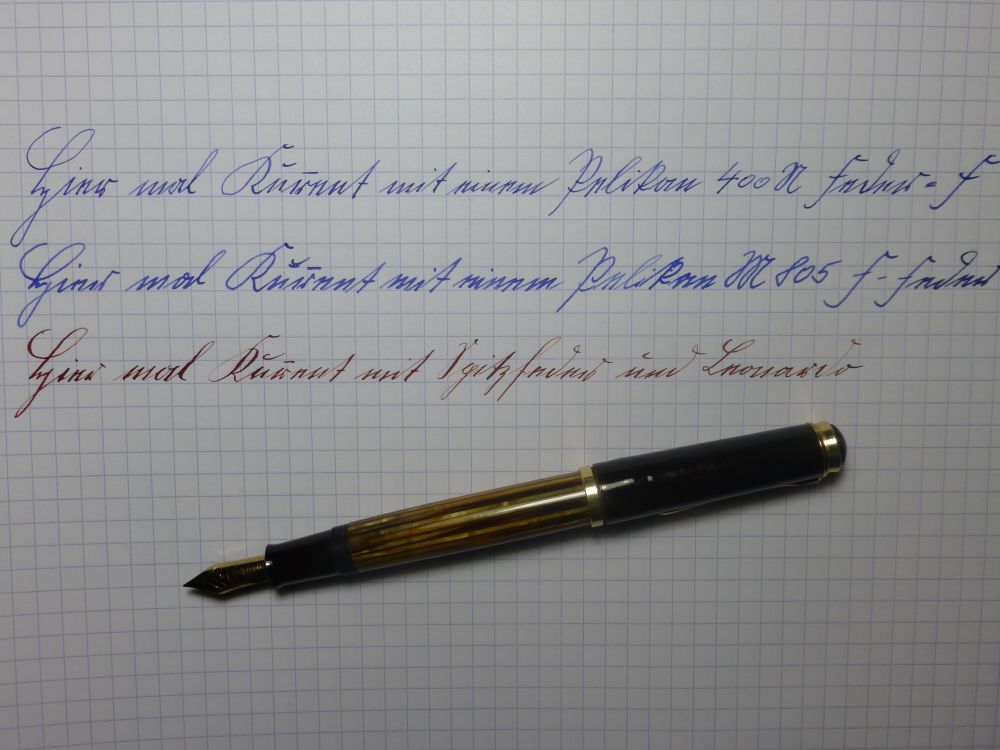 Hier mal Kurrent mit einem Pelikan 400N Feder - F
Hier mal Kurrent mit einem Pelikan M 805 F-Feder
Hier mal Kurrent mit Spitzfeder und Leonardo